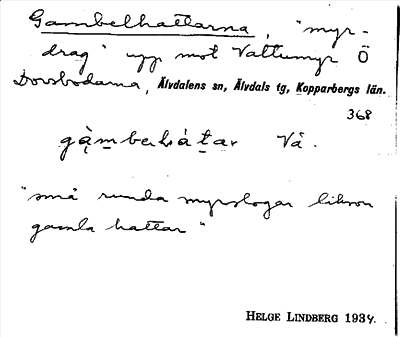 Gambelhattarna, "myr-
drag" upp mot Vattumyr Ö
Dorsbodarna, Älvdalens sn, Älvdals tg, Kopparbergs län.
368
gàmberhátar Vå.
"små runda myrslogar liksom
gamla hattar"
HELGE LINDBERG 1934.